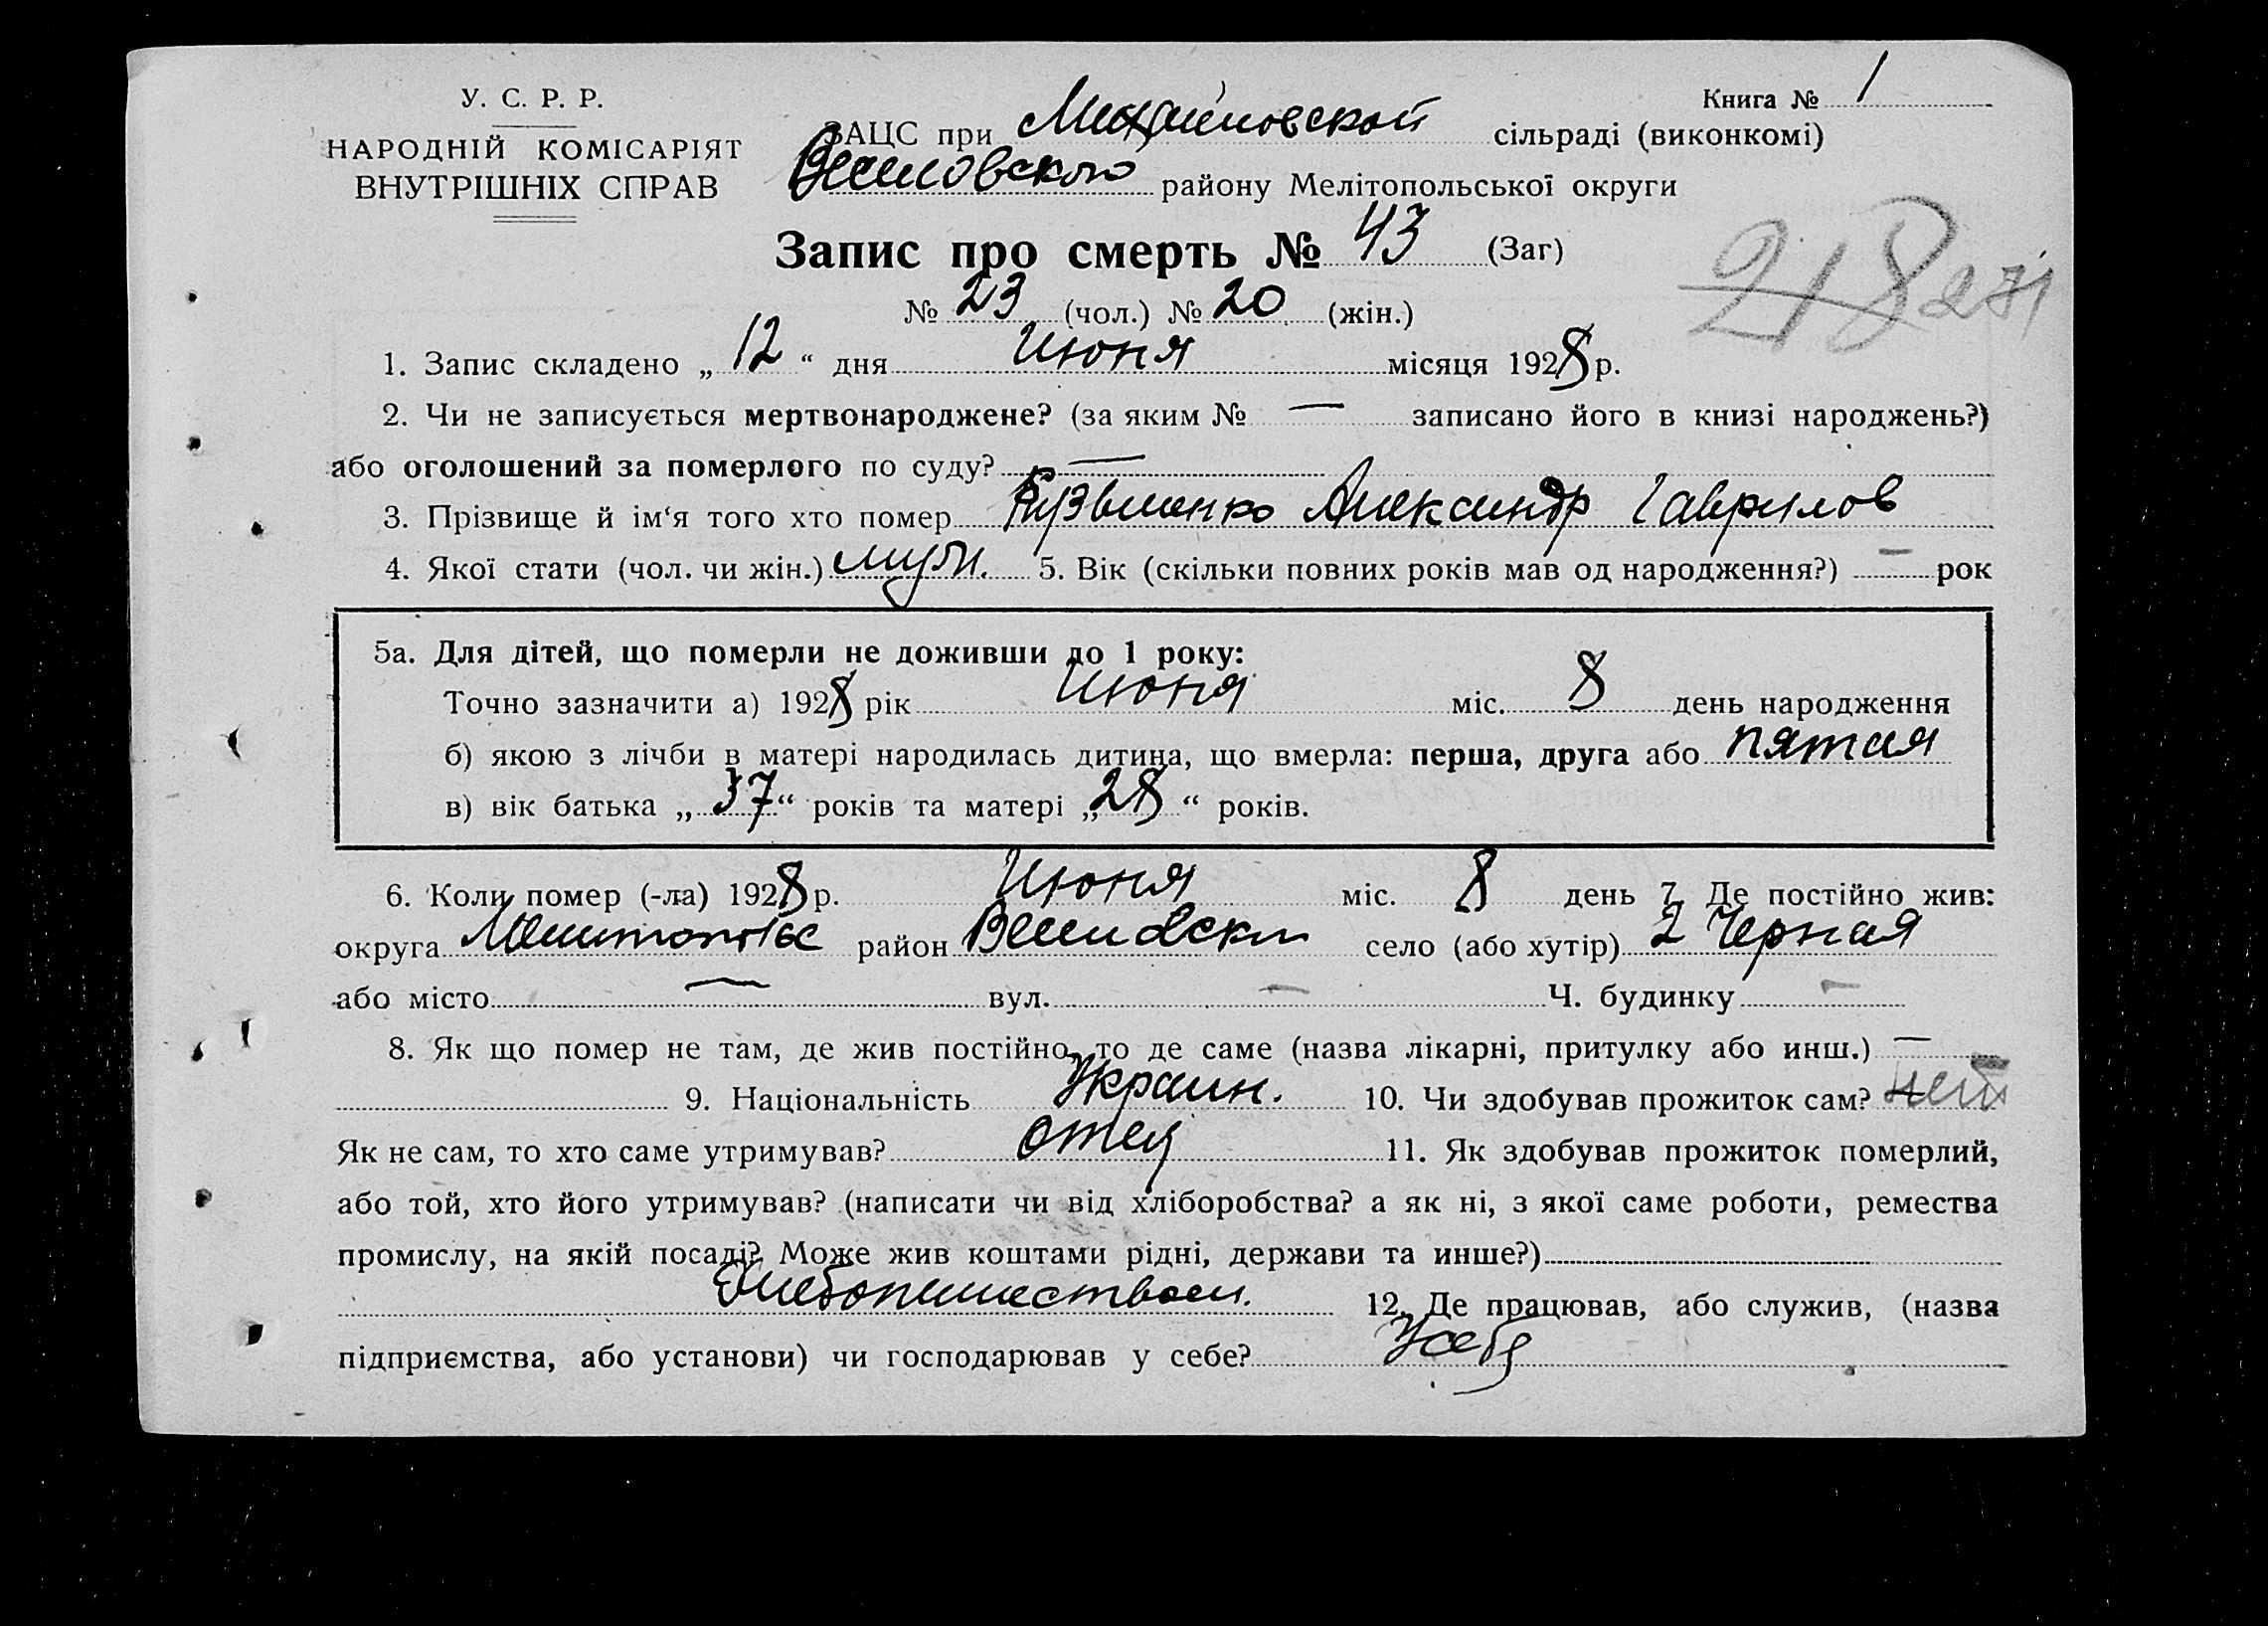 У. С. Р. Р.
НАРОДНІЙ КОМІСАРІЯТ
ВНУТРІШНІХ СПРАВ
Книга № 1
ЗАЦС при Михайловской сільраді (виконкомі)
Веселовского району Мелітопольської округи
Запис про смерть № 43 (Заг)
№ 23 (чол.) № 20 (жін.)
218 271
1. Запис складено „ 12 “ дня Июня місяця 1928 р.
2. Чи не записується мертвонароджене? (за яким № — записано його в книзі народжень?)
або оголошений за померлого по суду? —
3. Прізвище й ім‘я того хто помер Кузьменко Александр Гаврилов
4. Якої стати (чол. чи жін.) муж. 5. Вік (скільки повних років мав од народження?) — рок
5а. Для дітей, що померли не доживши до 1 року:
Точно зазначити а) 1928 рік Июня міс. 8 день народження
б) якою з лічби в матері народилась дитина, що вмерла: перша, друга або пятая
в) вік батька „ 37 “ років та матері „ 28 “ років.
6. Коли помер (-ла) 1928 р. Июня міс. 8 день 7. Де постійно жив:
округа район село (або хутір) 2 Черная
або місто — вул. — Ч. будинку —
8. Як що помер не там, де жив постійно, то де саме (назва лікарні, притулку або инш.) —
9. Національність Украин. 10. Чи здобував прожиток сам? нет
Як не сам, то хто саме утримував? отец 11. Як здобував прожиток померлий,
або той, хто його утримував? (написати чи від хліборобства? а як ні, з якої саме роботи, ремества
промислу, на якій посаді? Може жив коштами рідні, держави та инше?)
Хлебопашеством. 12. Де працював, або служив, (назва
підприємства, або установи) чи господарював у себе? У себя